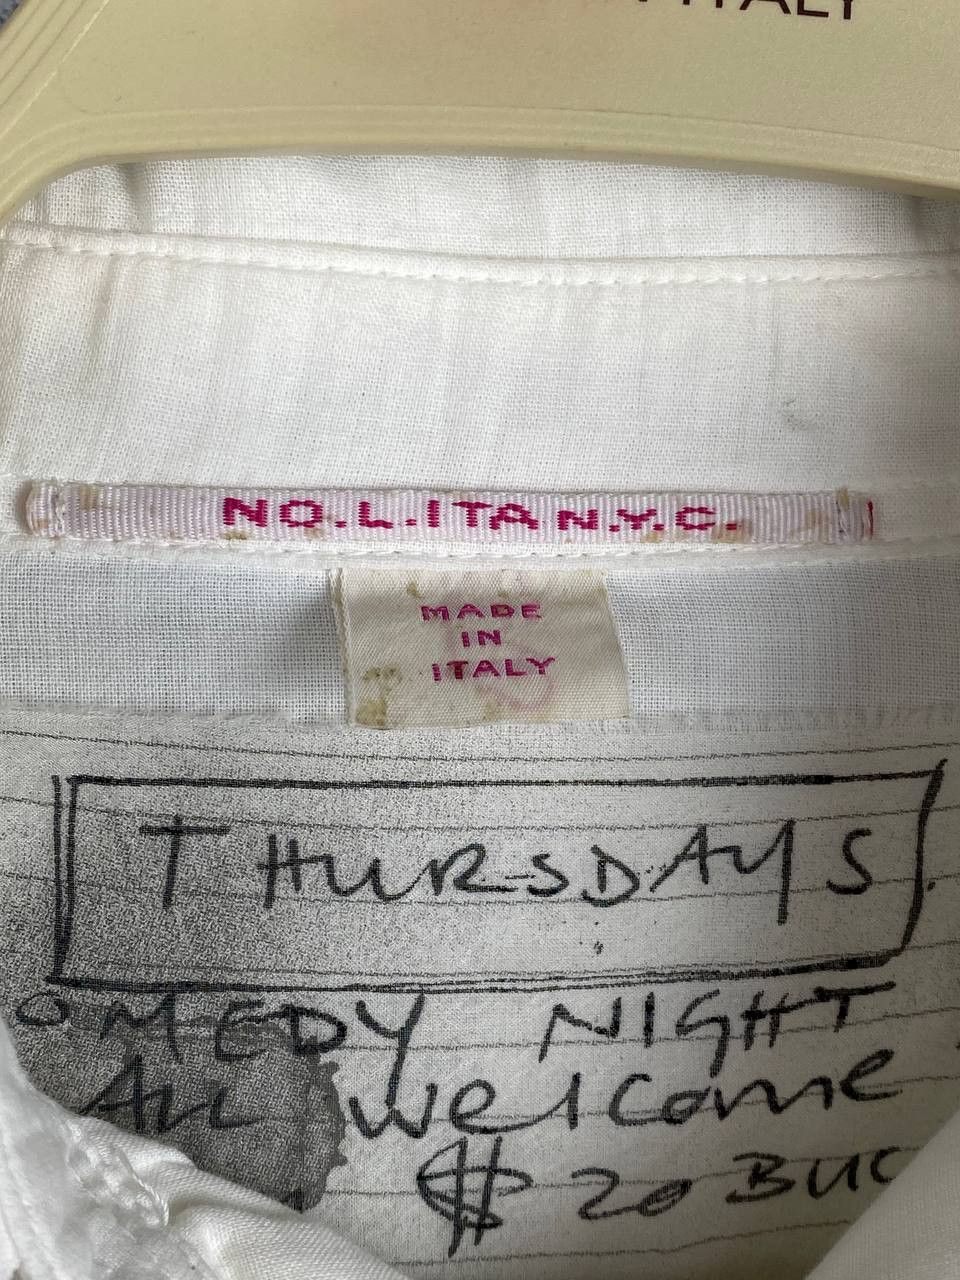 ITALY
NO.L.ITA N.Y.C.
MADE
IN
ITALY
THURSDAYS.
OMEDY NIGHT
All welcome
$ 20 BUC